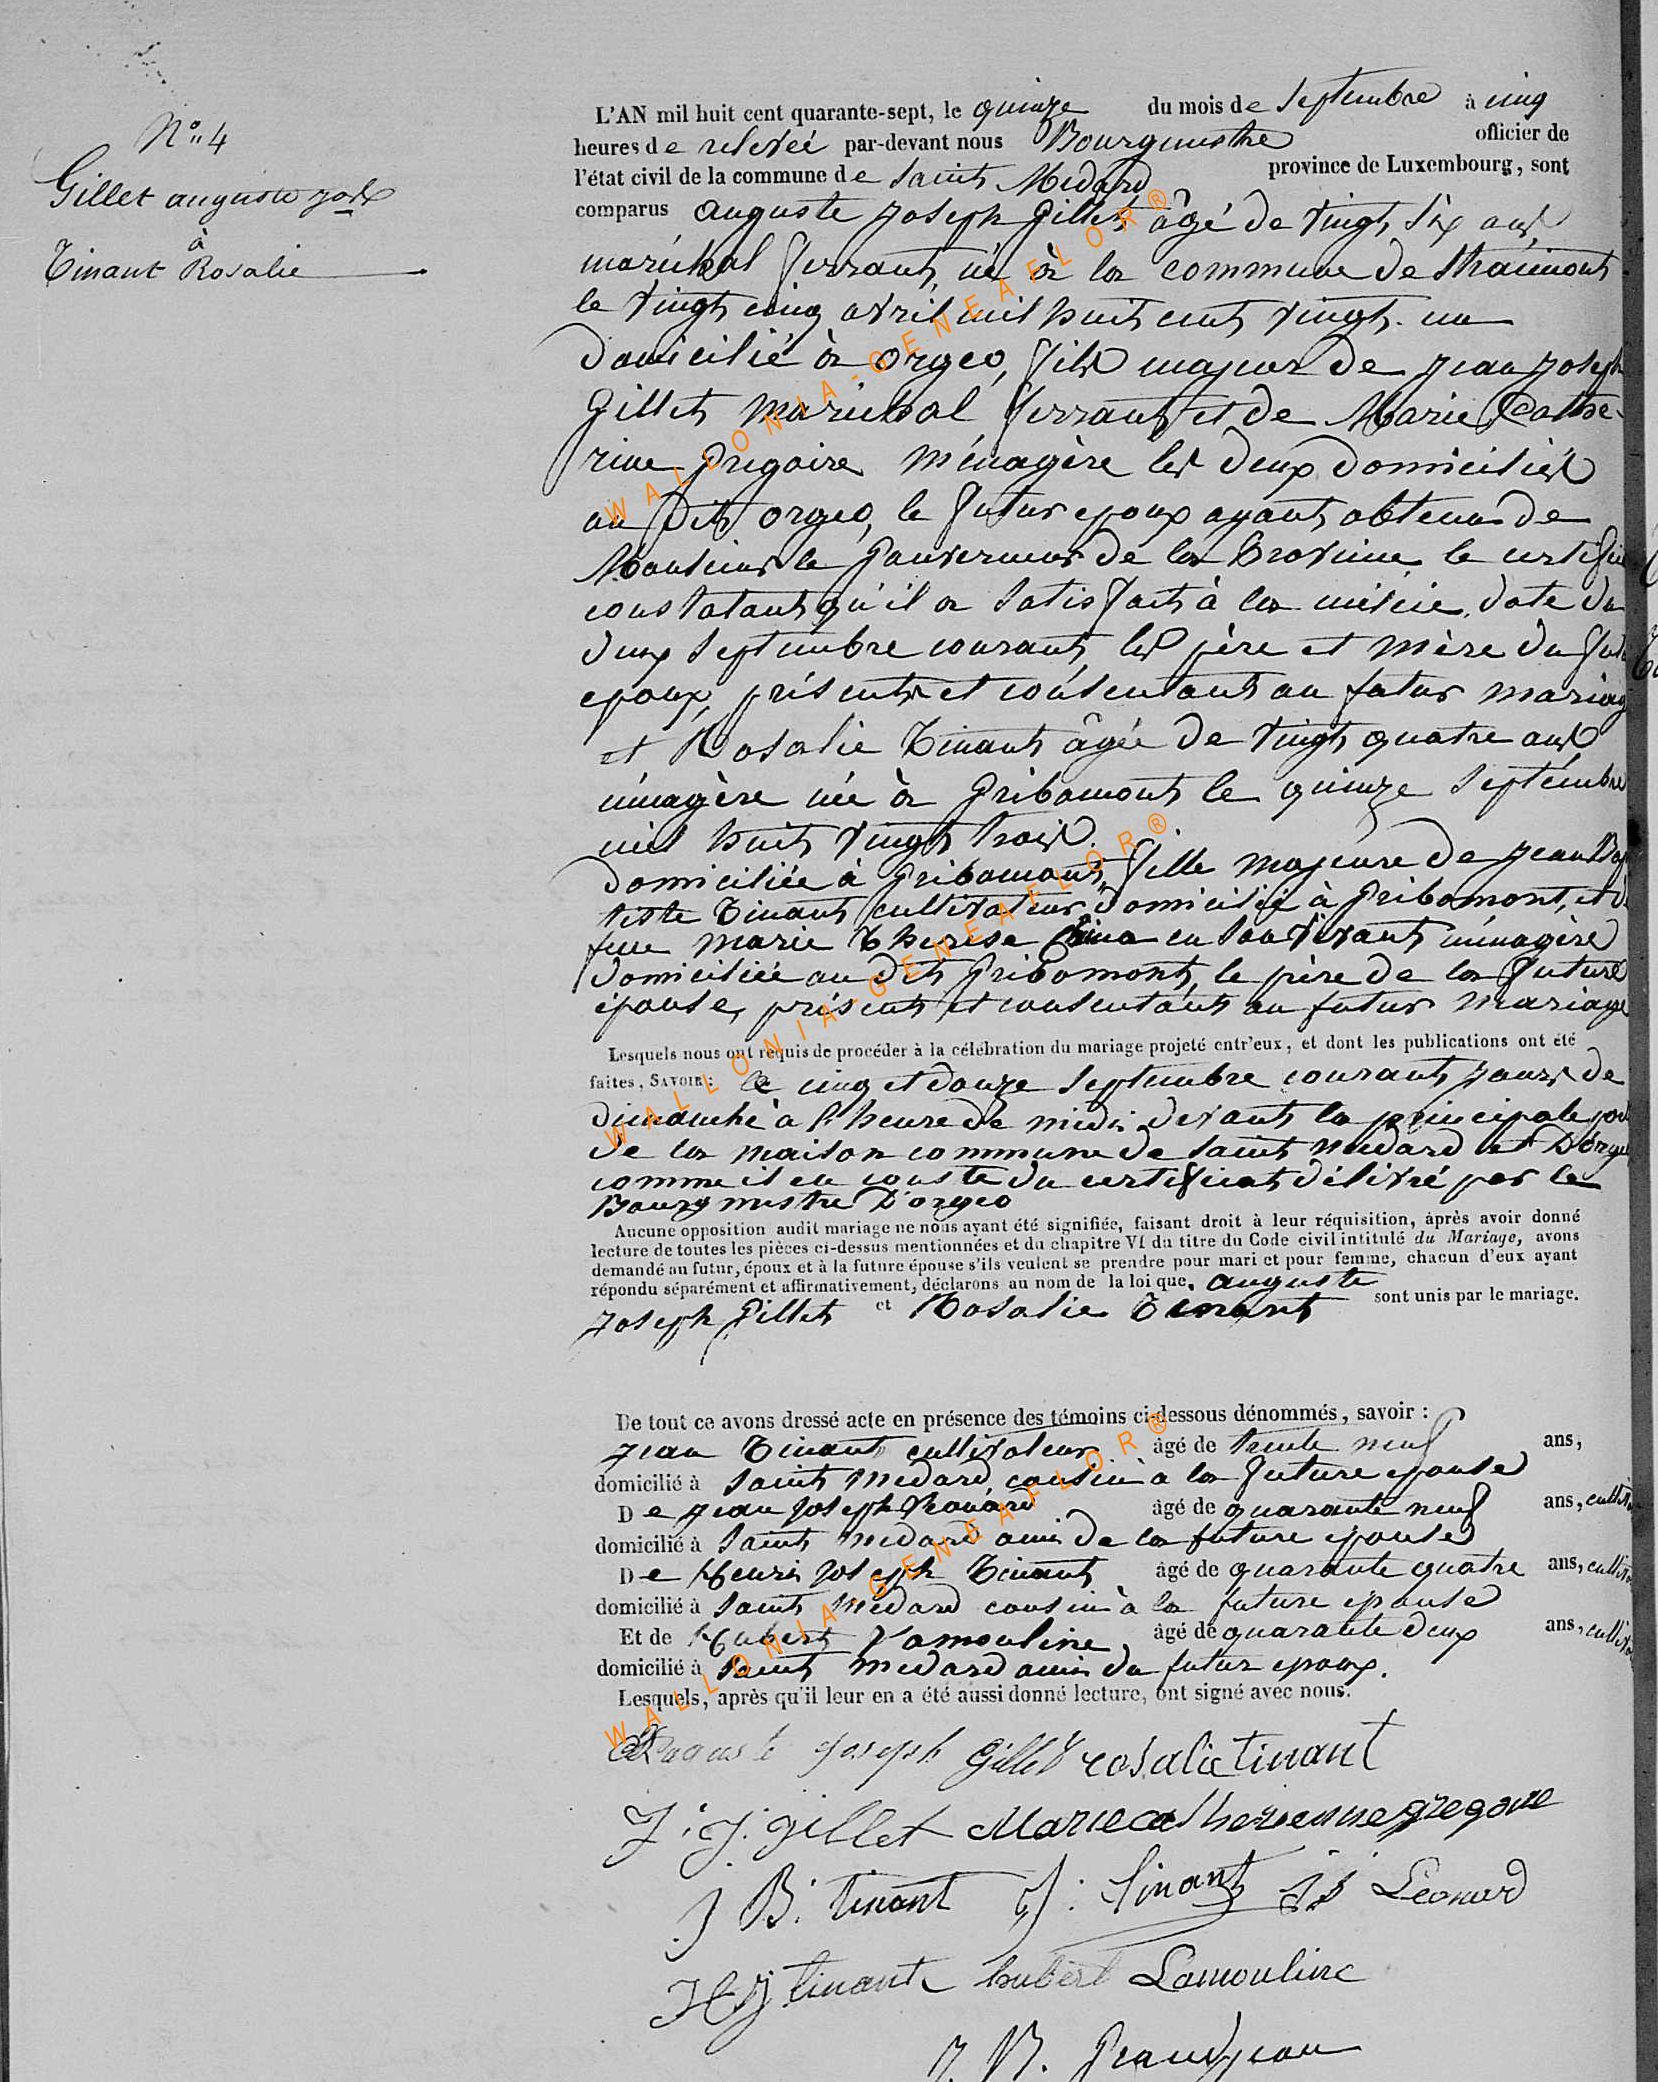 N° 4
Gillet auguste josh
à
Tinant Rosalie
L'AN mil huit cent quarante-sept, le quinze du mois de Septembre à cinq
heures de relevée par-devant nous Bourgmestre officier de
l'état civil de la commune de Saint Médard province de Luxembourg, sont
comparus auguste joseph Gillet âgé de vingt six ans
maréchal ferrant, né à la commune de Straimont
le vingt cinq avril mil huit cent vingt-un
domicilié à orgeo, fils majeur de jean joseph
Gillet maréchal ferrant et de Marie Cathe-
rine Gregoire ménagère les deux domiciliés
au dit orgeo, le futur epoux ayant obtenu de
Monsieur le Gouverneur de la Province le certifi
constatant qu'il a satisfait à la milice, date du
deux Septembre courant, les père et mère du futu
epoux, présents et consentants au futur mariag
et Rosalie Tinant âgée de vingt quatre ans
ménagère née à Gribomont le quinze Septembre
mil huit vingt trois.
domiciliée à Gribomont, fille majeure de jean Bap
tiste Tinant cultivateur domicilié à Gribomont, et d
feue marie Therese en son vivant ménagère
domiciliée au dit Gribomont, le père de la future
épouse, présent et consentant au futur mariage
Lesquels nous ont requis de procéder à la célébration du mariage projeté entr'eux, et dont les publications ont été
faites, SAVOIR: le cinq et douze Septembre courant jours de
dimanche à l'heure de midi devant la principale por
de la maison commune de Saint medard et D'orgeo
comme il en conste du certificat délivré par le
Bourgmestre D'orgeo
Aucune opposition audit mariage ne nous ayant été signifiée, faisant droit à leur réquisition, après avoir donné
lecture de toutes les pièces ci-dessus mentionnées et du chapitre VI du titre du Code civil intitulé du Mariage, avons
demandé au futur, époux et à la future épouse s'ils veulent se prendre pour mari et pour femme, chacun d'eux ayant
répondu séparément et affirmativement, déclarons au nom de la loi que, auguste
joseph Gillet et Rosalie Tinant sont unis par le mariage.
De tout ce avons dressé acte en présence des témoins ci-dessous dénommés, savoir :
jean Tinant cultivateur âgé de trente neuf ans,
domicilié à Saint medard, cousin à la future epouse
De jean joseph Léonard âgé de quarante neuf ans, cultiv
domicilié à Saint medard ami de la future epouse
De Henri joseph Tinant âgé de quarante quatre ans, cultiv
domicilié à Saint médard cousin à la future epouse
Et de Hubert Lamouline, âgé de quarante deux ans, cultiv
domicilié à Saint medard ami du futur epoux.
Lesquels, après qu'il leur en a été aussi donné lecture, ont signé avec nous.
Auguste joseph Gillet rosalie tinant
J. J. gillet Marie catherienne gregoire
J B. tinant J. tinant jj Léonard
H J tinant hubert Lamouline
J. B. Grandjean
WALLONIA-GENEAFLOR®
WALLONIA-GENEAFLOR®
WALLONIA-GENEAFLOR®